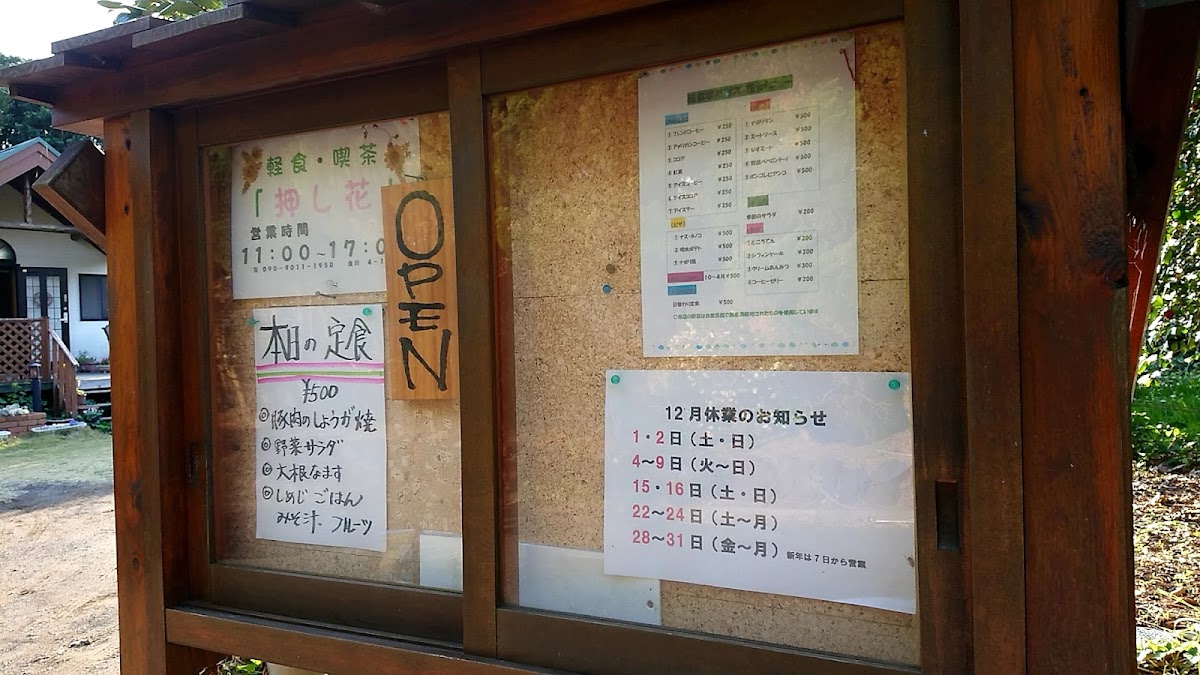 軽食・喫茶
「押し花
営業時間
11:00~17:0
090-9011-1950
OPEN
本日の定食
¥500
◎豚肉のしょうが焼
◎野菜サラダ
◎大根なます
◎しめじごはん
みそ汁 フルーツ
①ブレンドコーヒー ¥250
②アメリカンコーヒー ¥250
③ココア ¥250
④紅茶 ¥250
⑤アイスコーヒー ¥250
⑥アイスココア ¥250
⑦アイスティー ¥250
ピザ
①ナス・キノコ ¥500
¥500
¥500
10~4月 ¥500
日替わり定食 ¥500
①ナポリタン ¥500
②ミートソース ¥500
¥500
¥500
⑤ボンゴレビアンコ ¥500
季節のサラダ ¥200
①ところてん ¥200
②シフォンケーキ ¥200
③クリームあんみつ ¥300
④コーヒーゼリー ¥200
12月休業のお知らせ
1・2日(土・日)
4~9日(火~日)
15・16日(土・日)
22~24日(土~月)
28~31日(金~月)新年は7日から営業